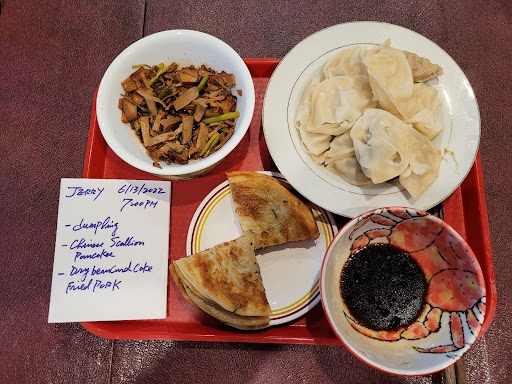 JERRY 6/13/2022
7:00PM
- dumpling
- Chinese Scallion
Pancake
- Dry beancurd Cake
Fried PORK